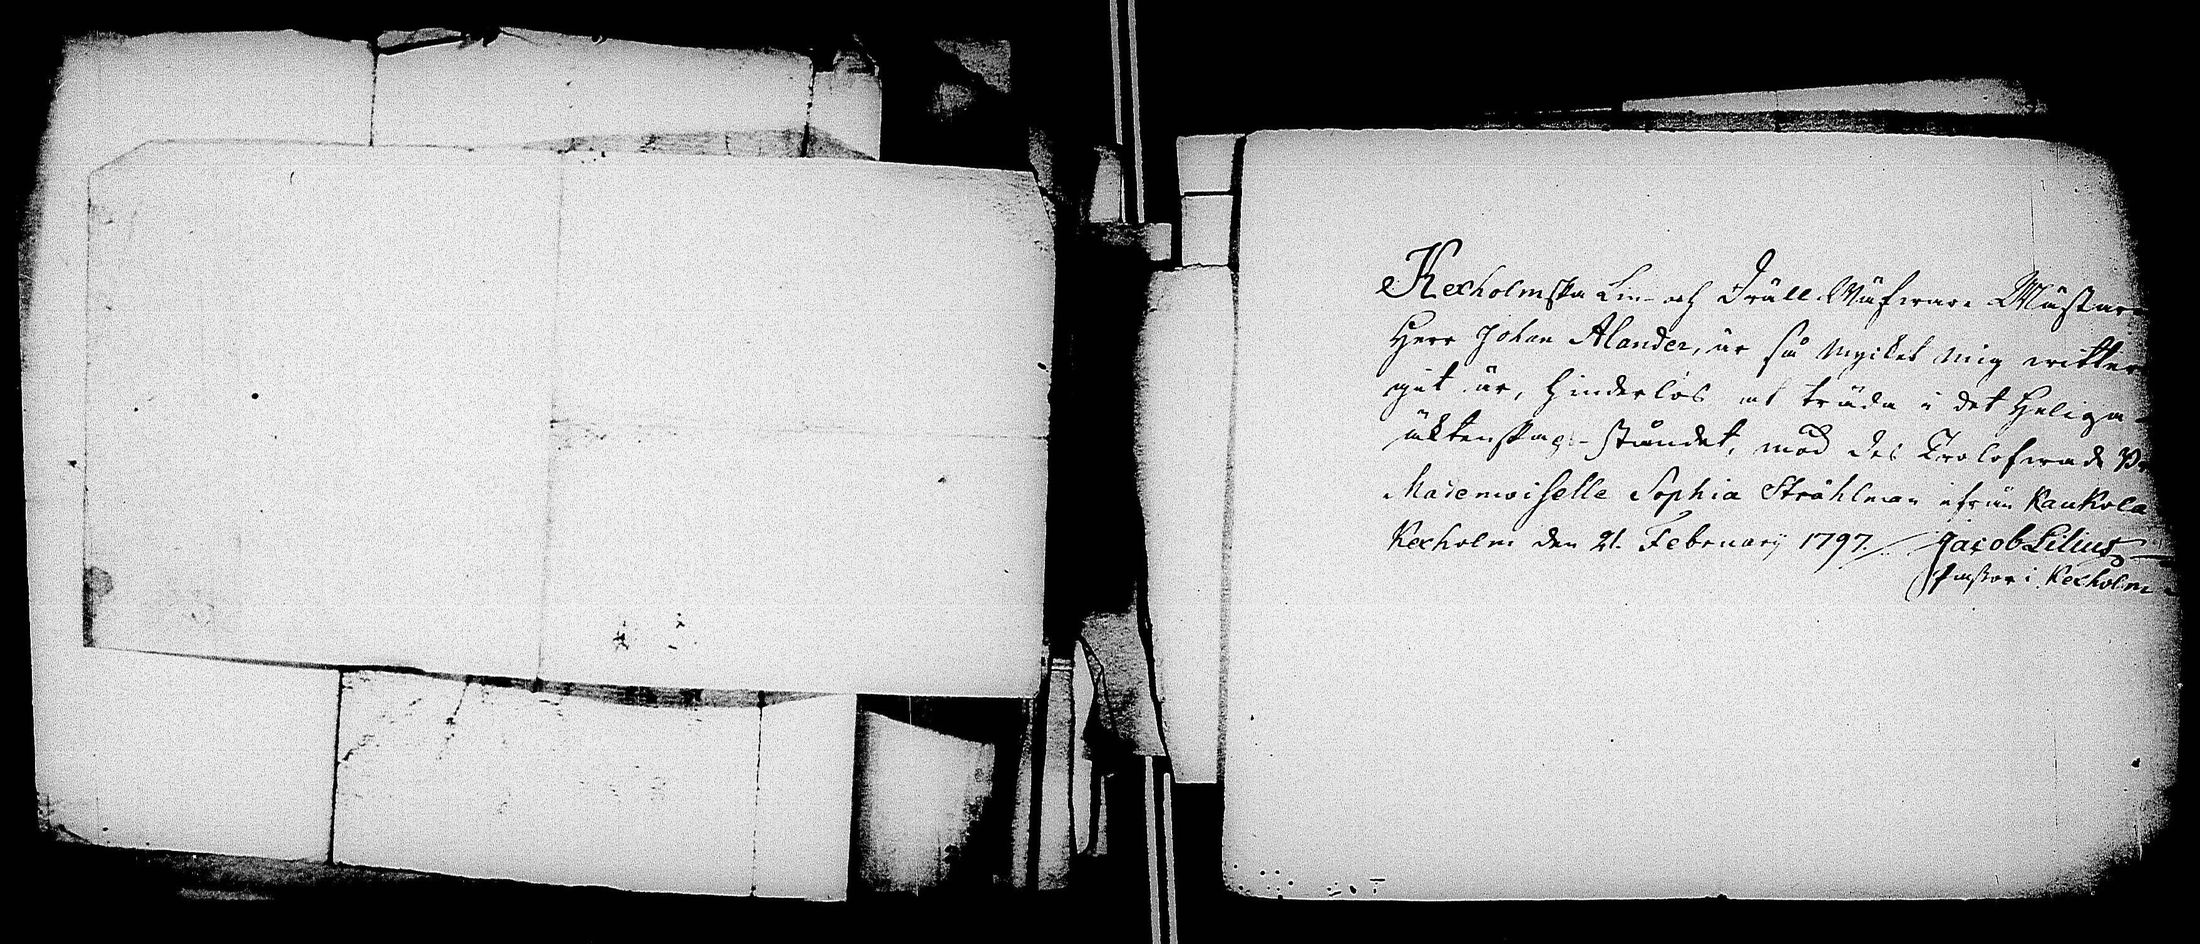 Kexholmska Lin- och Dräll Wäfware Mästare
Herr Johan Alander, är så mycket mig witter-
git är, hinderlös at träda i det Heliga
äktenskaps-ståndet, med des Trolofwade
Mademoiselle Sophia Stråhlman ifrån Kaukola
Kexholm den 21. February 1797. Jacob Lilius
Pastor i Kexholm